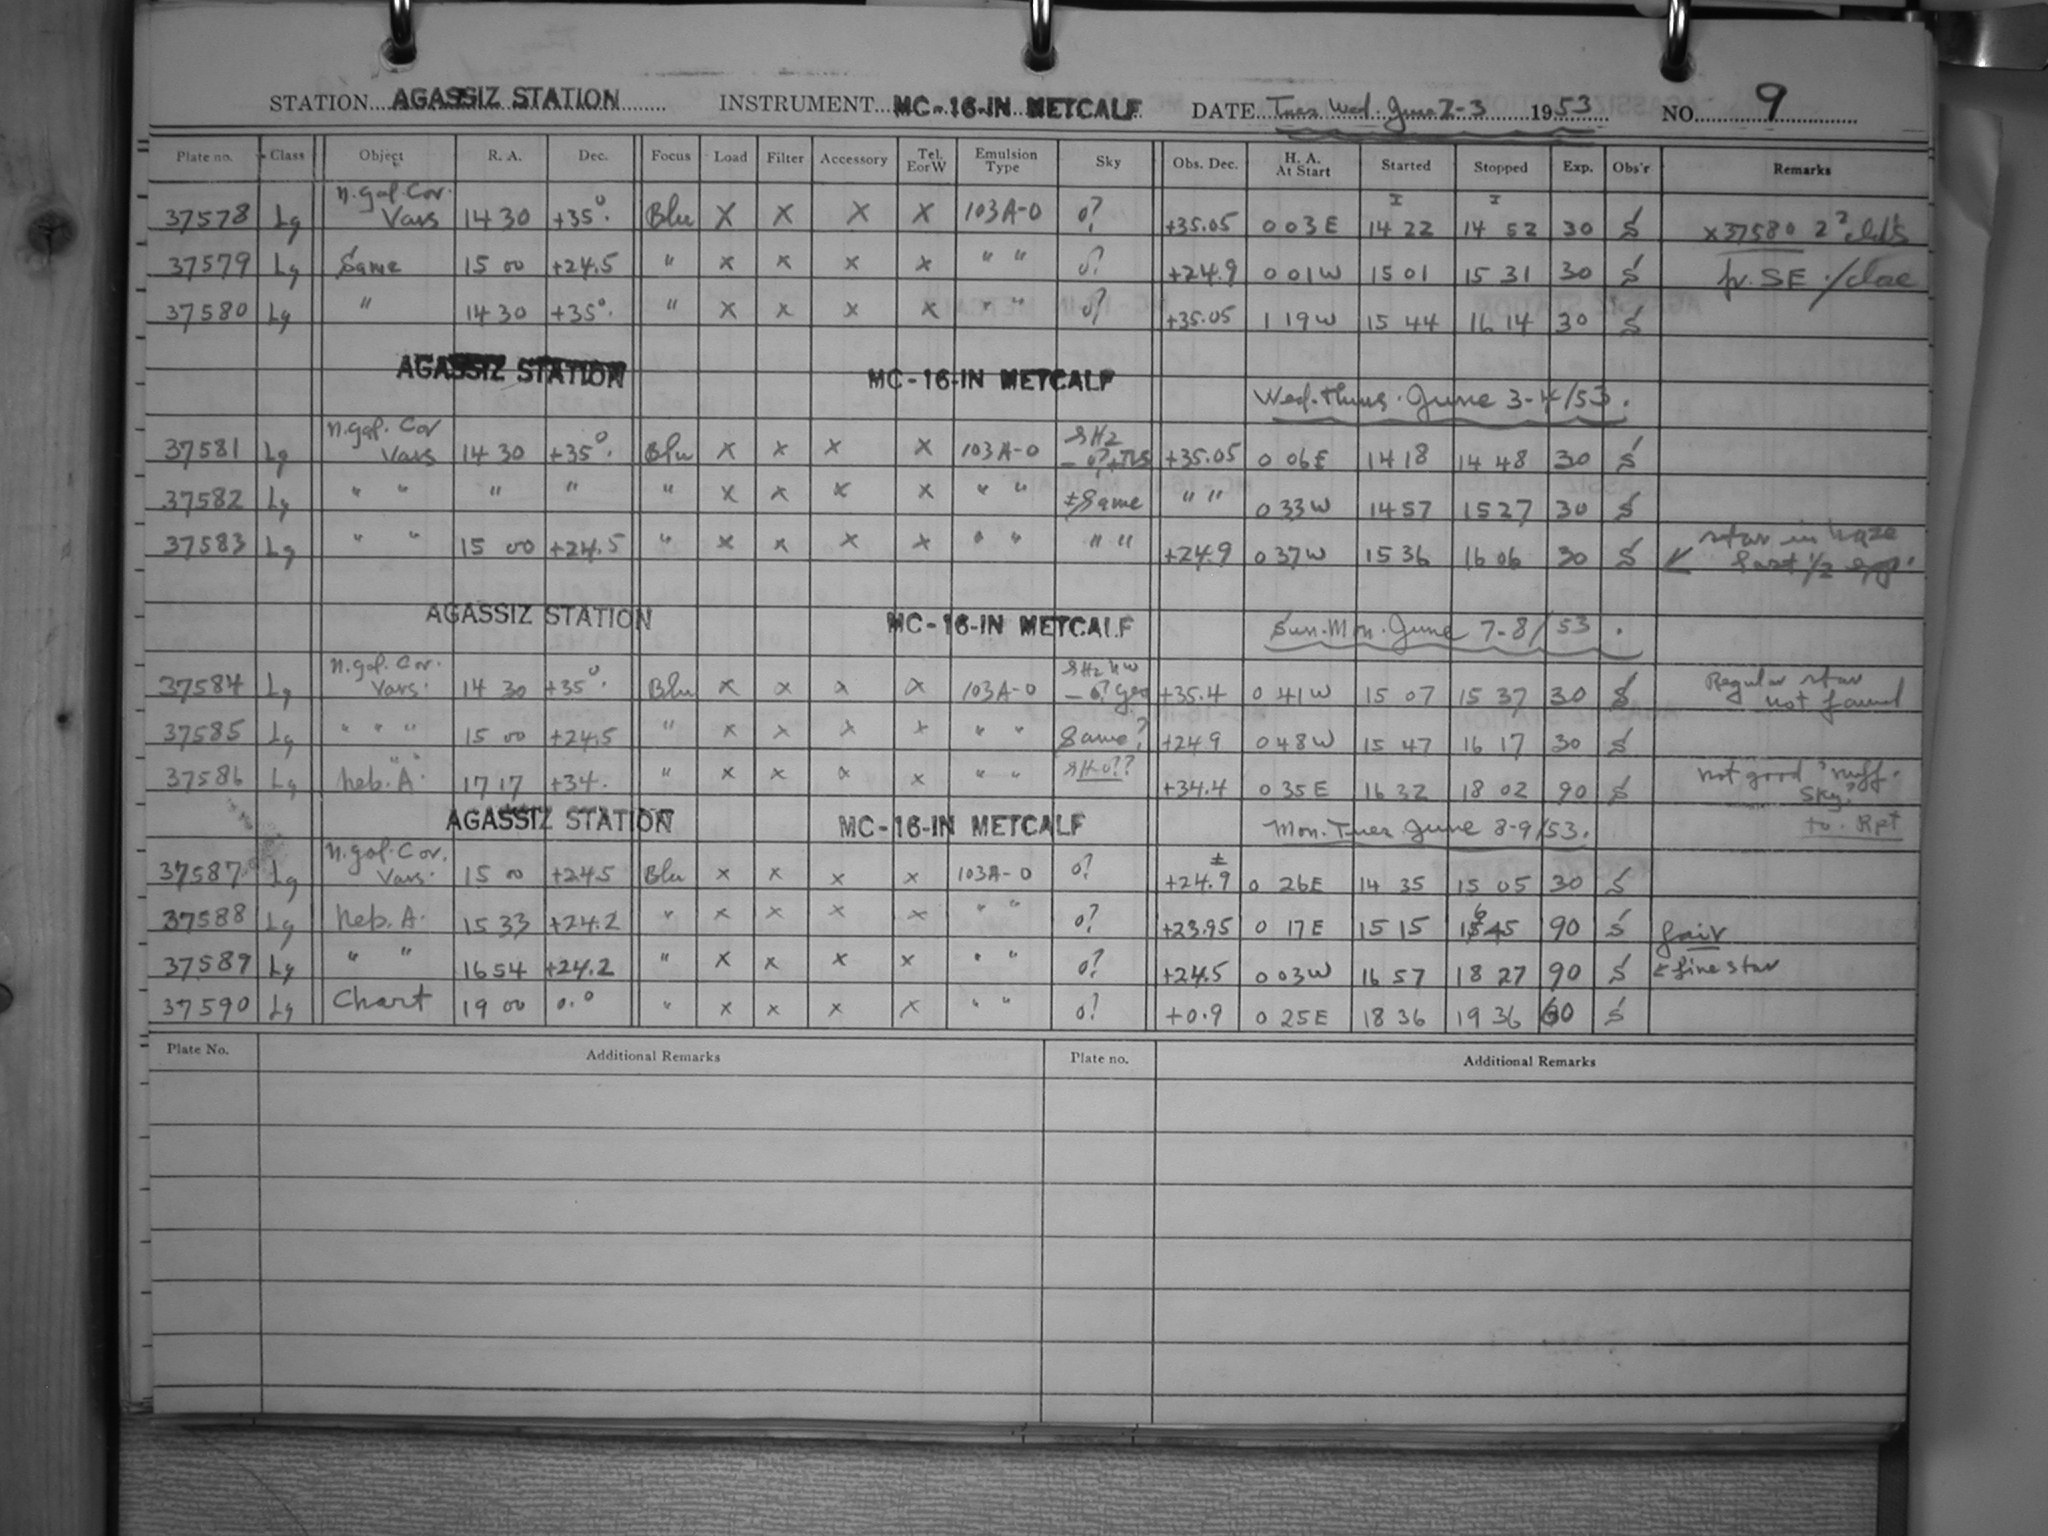 STATION AGASSIZ STATION INSTRUMENT MC-16-IN METCALF DATE Tues Wed. June 2-3 1953 NO. 9
Plate no. Class Object R. A. Dec. Focus Load Filter Accessory Tel. E or W Emulsion Type Sky Obs. Dec. H. A. At Start Started Stopped Exp. Obs'r Remarks
37578 Lg n. gal. Cor. Vars 14 30 +35° Blu X X X X 103A-O 0? +35.05 0 03 E 14 22 14 52 30 S x37580
37579 Lg Same 15 00 +24.5 " x x x x " " 0? +24.9 0 01 W 15 01 15 31 30 S SE
37580 Lg " 14 30 +35° " x x x x " " 0? +35.05 1 19 W 15 44 16 14 30 S
AGASSIZ STATION MC-16-IN METCALF Wed. Thurs. June 3-4/53.
37581 Lg n. gal. Cor Vars 14 30 +35° Blu x x x x 103A-O +35.05 0 06 E 14 18 14 48 30 S
37582 Lg " " " " " x x x x " " ± Same " " 0 33 W 14 57 15 27 30 S
37583 Lg " " 15 00 +24.5 " x x x x " " " " +24.9 0 37 W 15 36 16 06 30 S star in haze last 1/2
AGASSIZ STATION MC-16-IN METCALF Sun. Mon. June 7-8/53.
37584 Lg n. gal. Cor. Vars. 14 30 +35° Blu x x x x 103A-O +35.4 0 41 W 15 07 15 37 30 S Regular star not found
37585 Lg " " " 15 00 +24.5 " x x x x " " Same? +24.9 0 48 W 15 47 16 17 30 S
37586 Lg Neb. "A" 17 17 +34. " x x x x " " +34.4 0 35 E 16 32 18 02 90 S not good 'nuff. Sky? to Rpt
AGASSIZ STATION MC-16-IN METCALF Mon. Tues June 8-9/53.
37587 Lg n. gal. Cor. Vars. 15 00 +24.5 Blu x x x x 103A-O 0? ± +24.9 0 26 E 14 35 15 05 30 S
37588 Lg Neb. A. 15 33 +24.2 " x x x x " " 0? +23.95 0 17 E 15 15 16 45 90 S fair
37589 Lg " " 16 54 +24.2 " x x x x " " 0? +24.5 0 03 W 16 57 18 27 90 S fine star
37590 Lg Chart 19 00 0.0 " x x x x " " 0? +0.9 0 25 E 18 36 19 36 60 S
Plate No. Additional Remarks Plate no. Additional Remarks